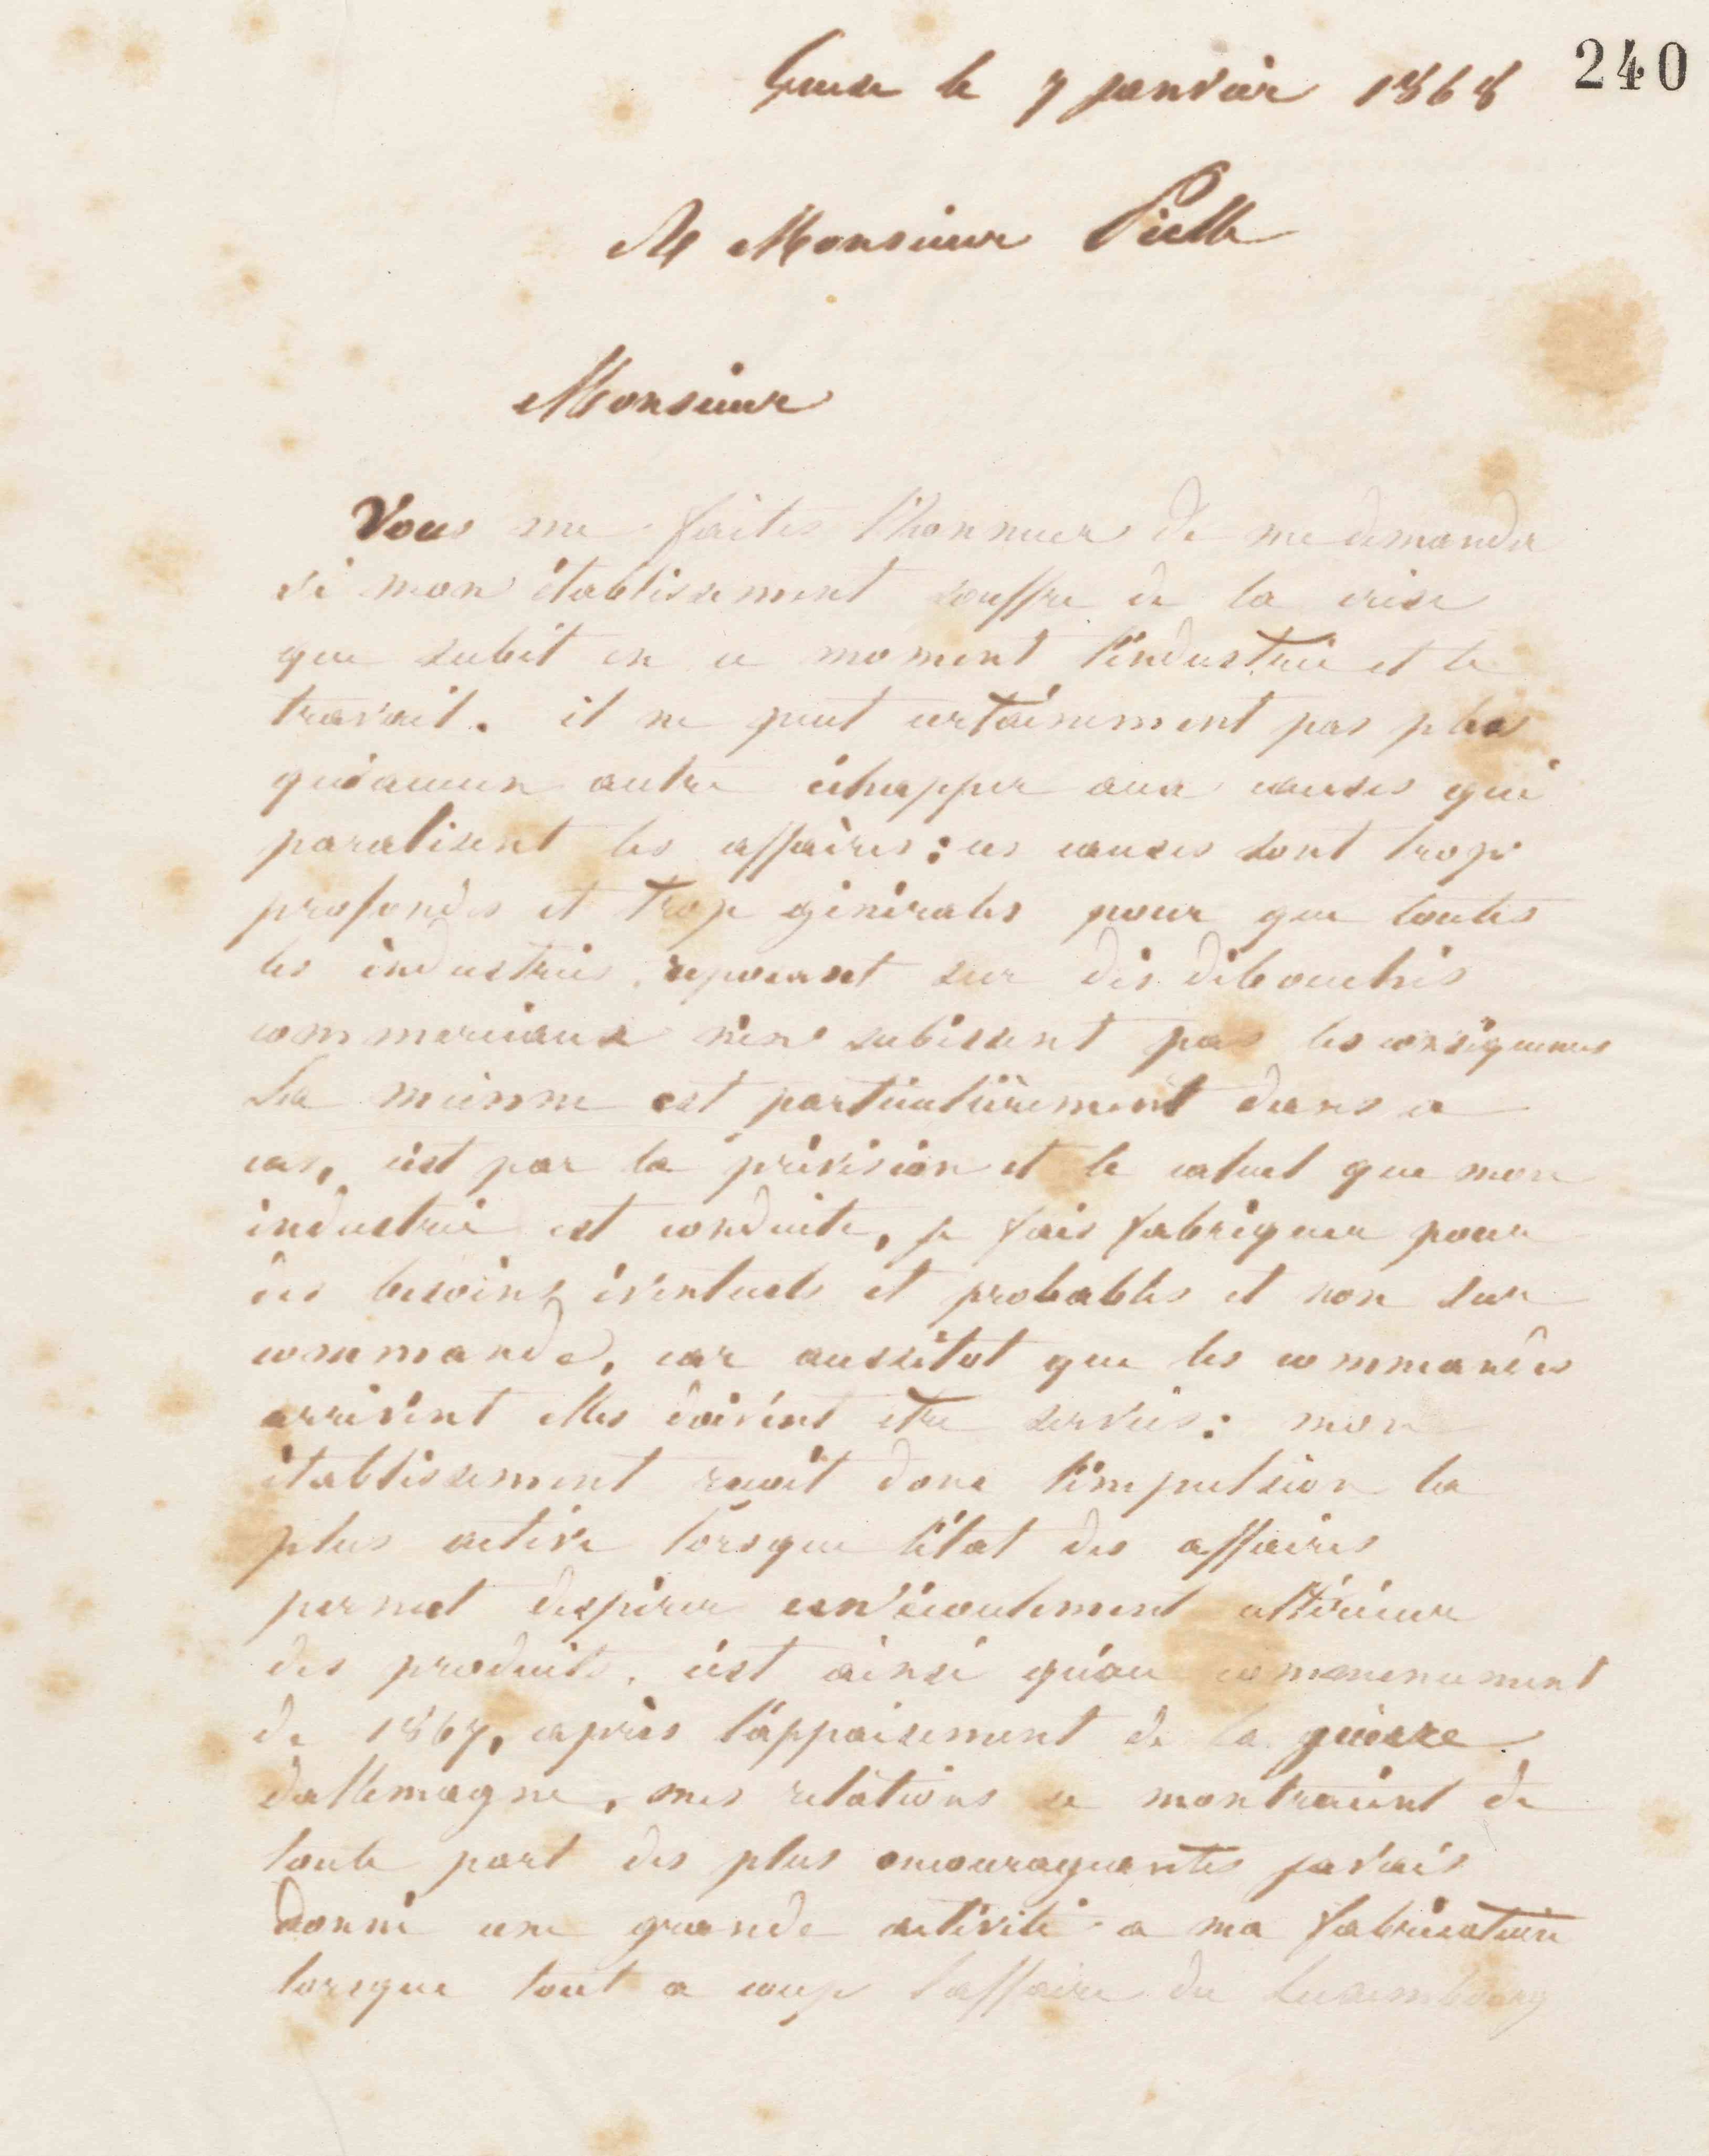 240
Guise le 7 janvier 1868
A Monsieur Pielle
Monsieur
Vous me faites l'honneur de me demander
si mon établissement souffre de la crise
que subit en ce moment l'industrie et le
travail. il ne peut certainement pas plus
qu'aucun autre échapper aux causes qui
paralisent les affaires : ces causes sont trop
profondes et trop générales pour que toutes
les industries reposant sur des débouchés
commerciaux n'en subissent pas les conséquences
La mienne est particulièrement dans ce
cas, c'est par la prévision et le calcul que mon
industrie est conduite, je fais fabriquer pour
des besoins éventuels et probables et non sur
commande, car aussitot que les commandes
arrivent elles doivent etre servies : mon
établissement reçoit donc l'impulsion la
plus active lorsque l'état des affaires
permet d'espérer un écoulement ultérieur
des produits. c'est ainsi qu'au commencement
de 1867, après l'appaisement de la guerre
dallemagne, mes relations se montraient de
toute part des plus encourageantes javais
donné une grande activité a ma fabrication
lorsque tout a coup l'affaire du Luxembourg